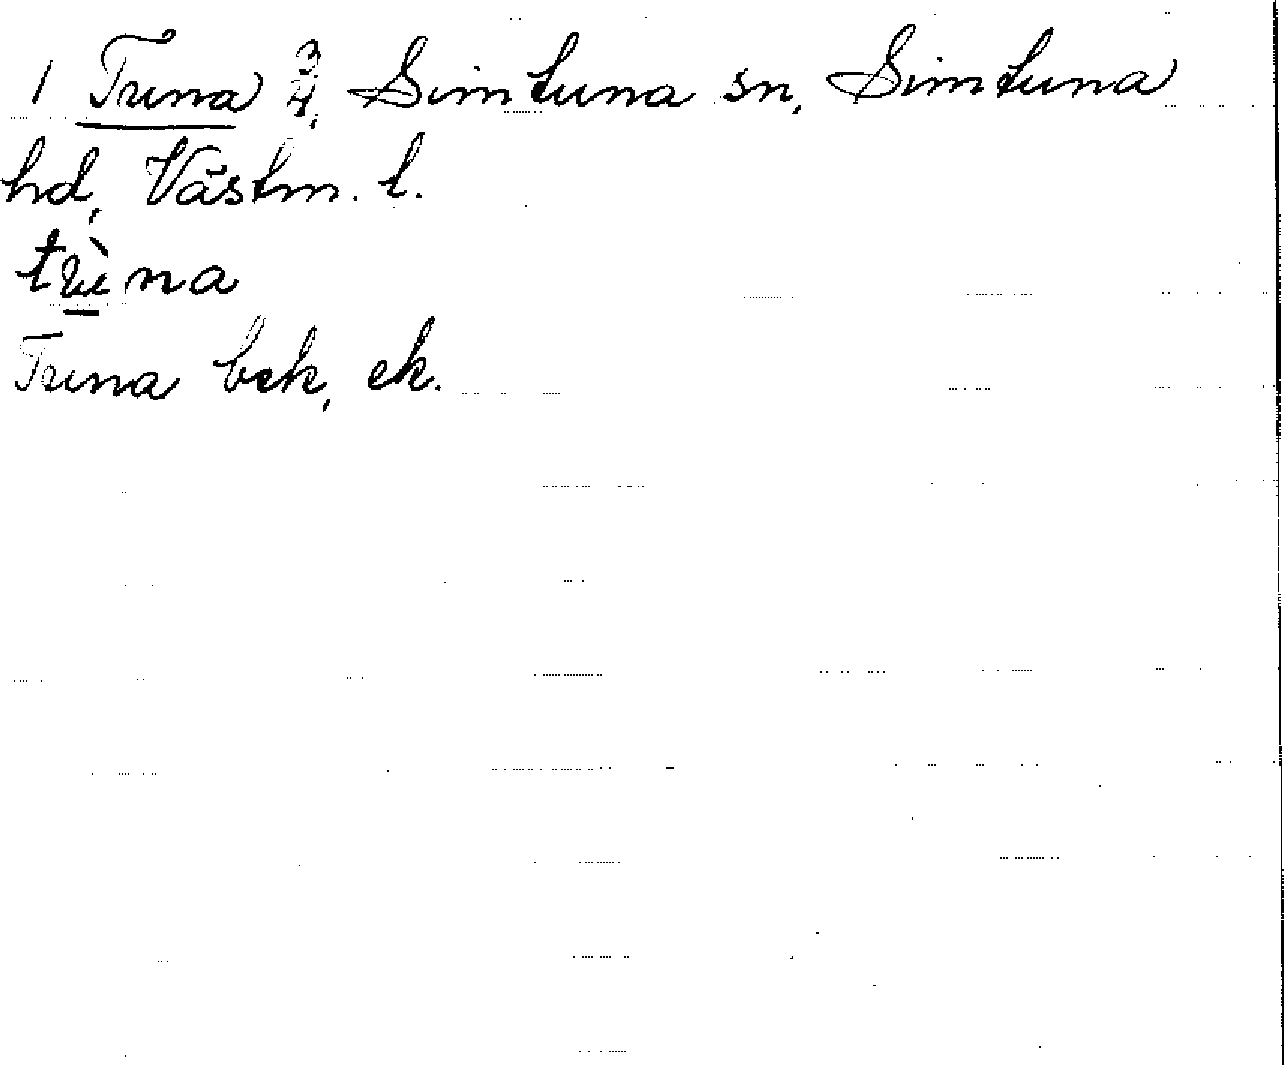 1 Truna 3/4, Simtuna sn, Simtuna
hd, Västm. l.
trù̲na
Truna bek, ek.